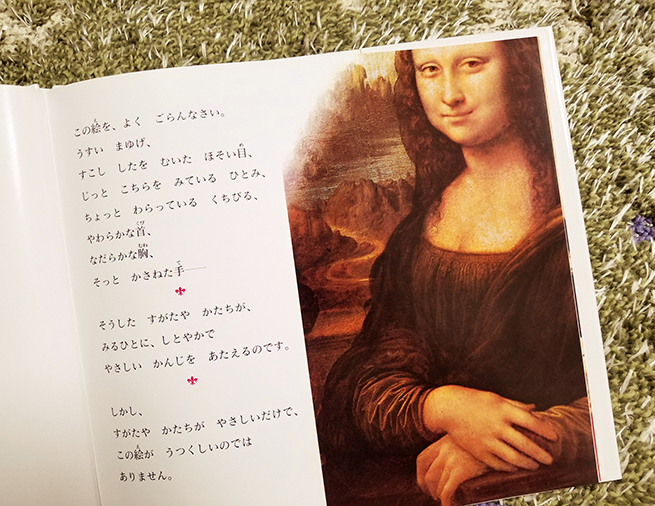 この絵を、よく　ごらんなさい。
うすい　まゆげ、
すこし　したを　むいた　ほそい目、
じっと　こちらを　みている　ひとみ、
ちょっと　わらっている　くちびる、
やわらかな首、
なだらかな胸、
そっと　かさねた手――
そうした　すがたや　かたちが、
みるひとに、しとやかで
やさしい　かんじを　あたえるのです。
しかし、
すがたや　かたちが　やさしいだけで、
この絵が　うつくしいのでは
ありません。